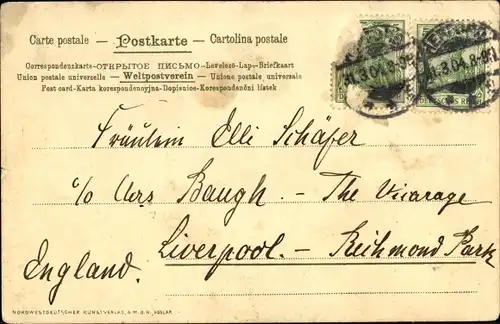 Carte postale — Postkarte — Cartolina postale
Correspondenzkarte-ОТКРЫТОЕ ПИСЬМО-Levelező-Lap-Briefkaart
Union postale universelle — Weltpostverein — Unione postale universale
Post card-Karta korespondencyjna-Dopisnice-Korespondenční lístek
.3.04.8-9
DEUTSCHES REICH
Fräulein Elli Schäfer
c/o Mrs Baugh. - The Vicarage
Liverpool. - Richmond Park
England.
NORDWESTDEUTSCHER KUNSTVERLAG, G.M.B.H., GOSLAR